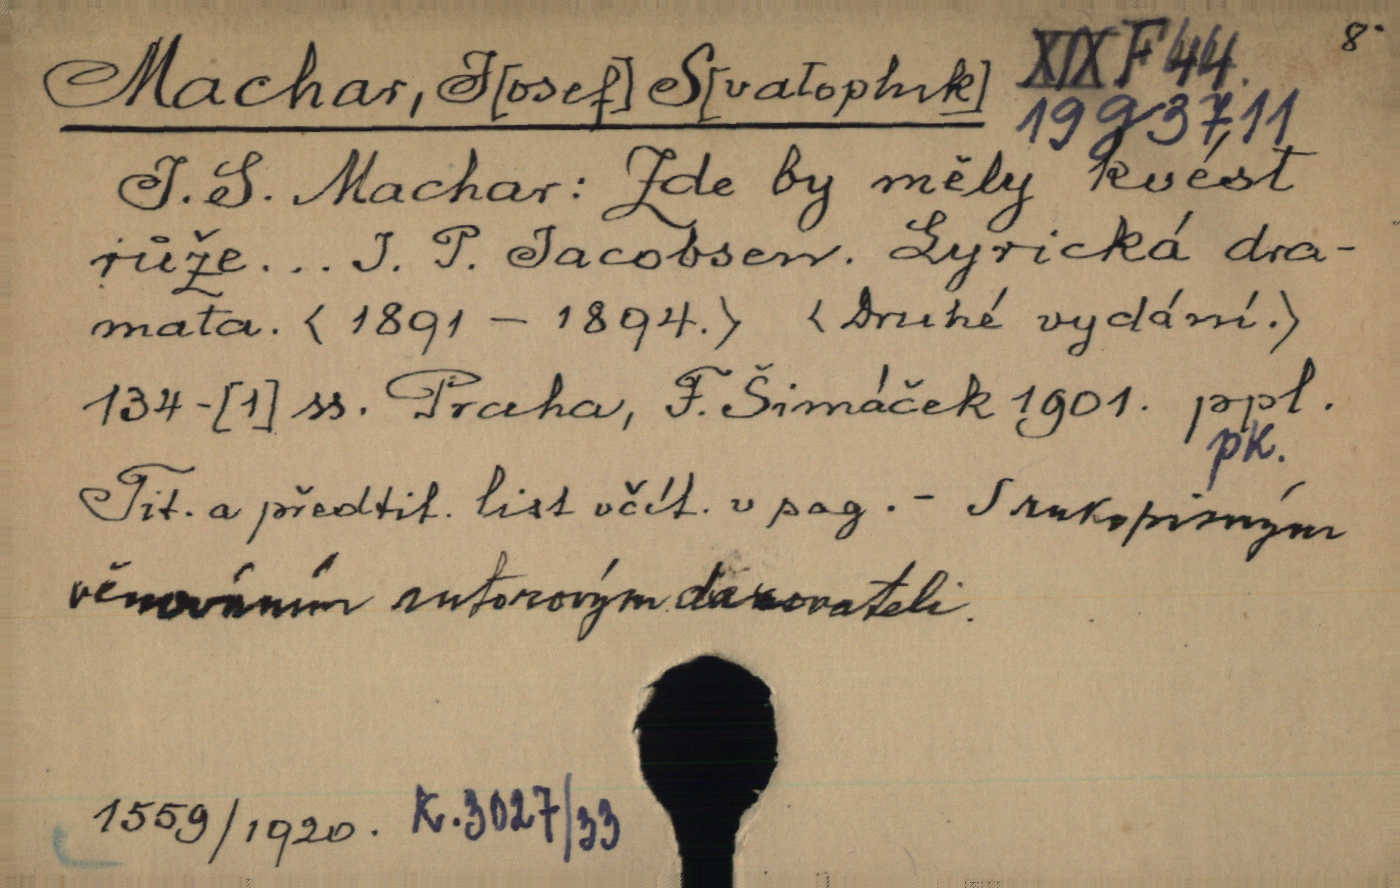 Machar, J[osef] S[vatopluk]
XIX F 44.
8°
19 g 37,11
J. S. Machar: Zde by měly kvést
růže... J. P. Jacobsen. Lyrická dra-
mata. <1891 – 1894.> <Druhé vydání.>
134-[1] ss. Praha, F. Šimáček 1901. ppl.
pk.
Tit. a předtit. list včít. v pag. – S rukopisným
věnováním autorovým darovateli.
1559/1920. K.3027/33